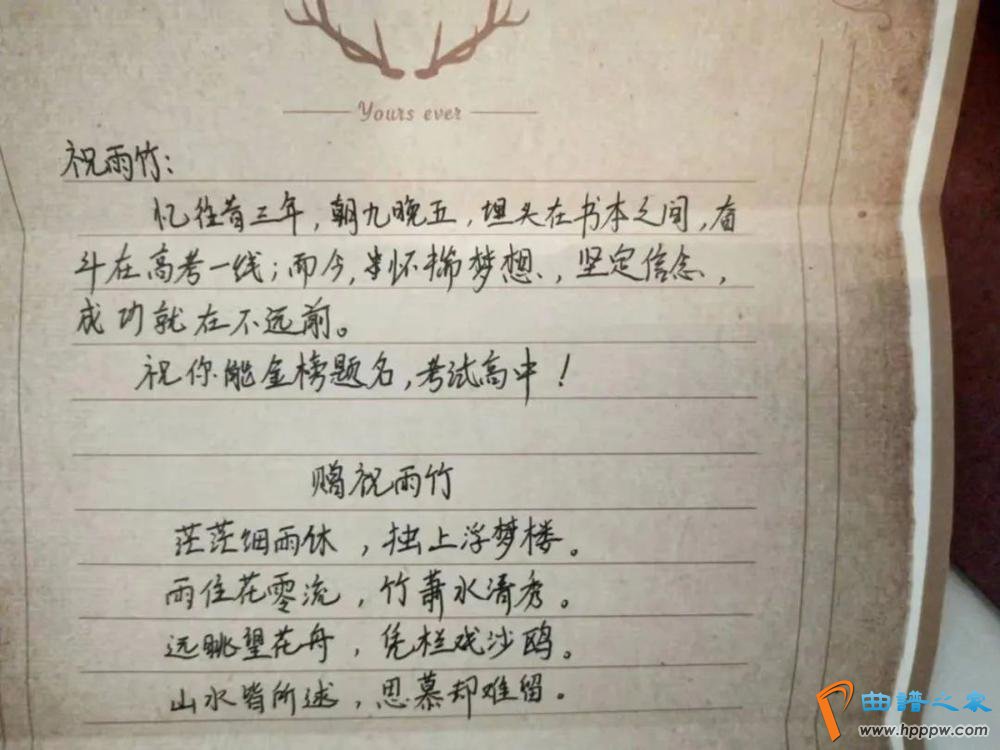 Yours ever
祝雨竹:
忆往昔三年,朝九晚五,埋头在书本之间,奋
斗在高考一线;而今,怀揣梦想,坚定信念,
成功就在不远前。
祝你能金榜题名,考试高中!
赠祝雨竹
茫茫细雨休,独上浮梦楼。
雨住花零流,竹萧水清秀。
远眺望花舟,凭栏戏沙鸥。
山水皆所述,思慕却难留。
曲谱之家
www.hppw.com